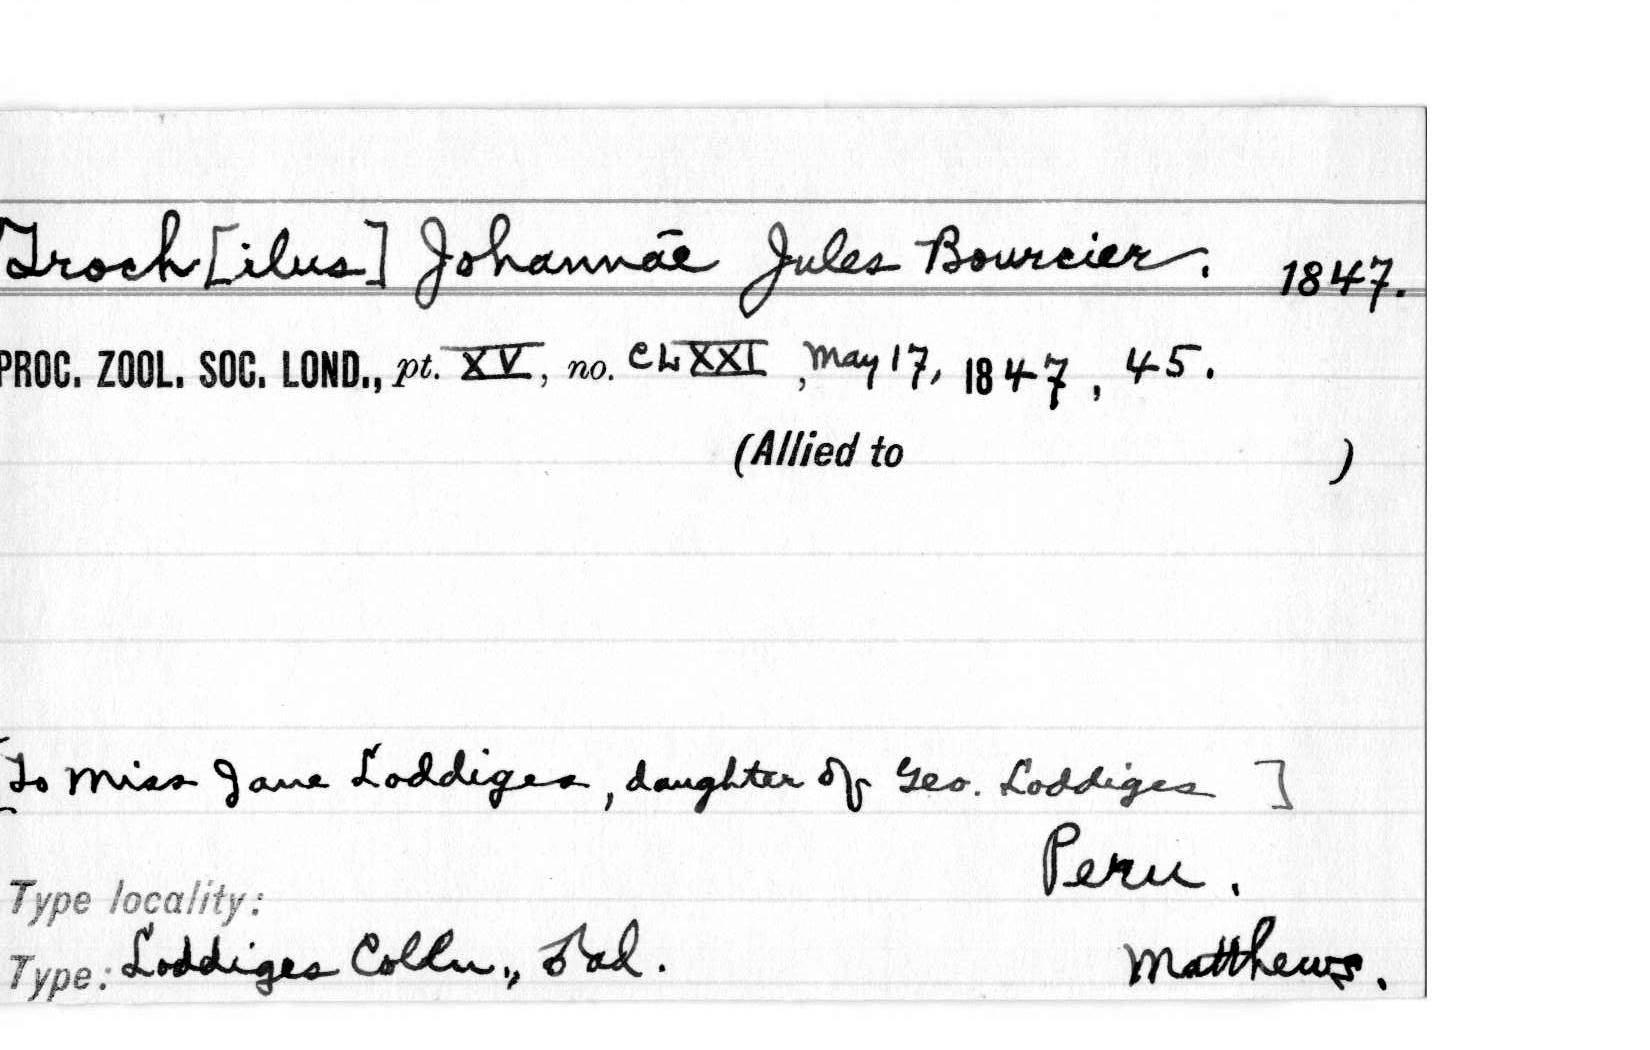 Troch[ilus] Johannae Jules Bourcier. 1847.
PROC. ZOOL. SOC. LOND., pt. XV, no. CLXXI, May 17, 1847, 45.
(Allied to )
[To Miss Jane Loddiges, daughter of Geo. Loddiges ]
Peru.
Type locality:
Type: Loddiges Colln., ad. Matthews.